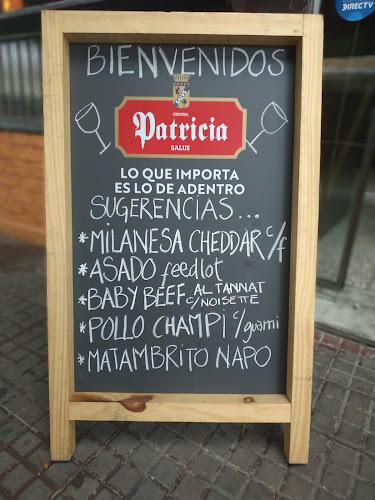 DIRECTV
BIENVENIDOS
CERVEZA
Patricia
SALUS
LO QUE IMPORTA
ES LO DE ADENTRO
SUGERENCIAS...
*MILANESA CHEDDAR c/f
*ASADO feedlot
*BABY BEEF AL TANNAT c/NOISETTE
*POLLO CHAMPI c/guarni
*MATAMBRITO NAPO